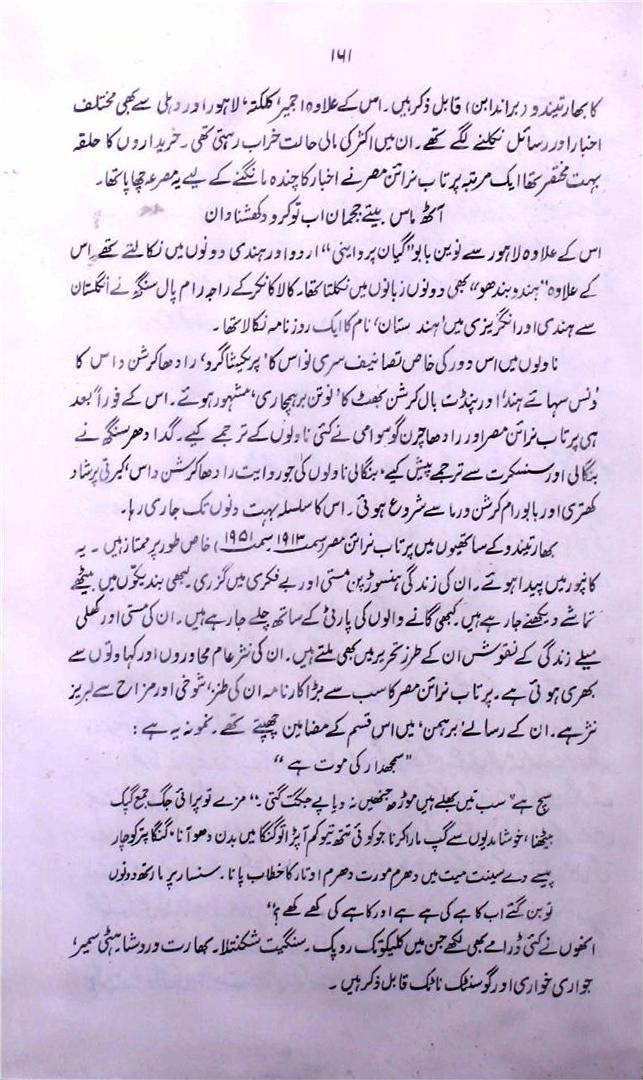 ۱۶۱
کا بھارتیندو (برندابن) قابل ذکر ہیں۔ اس کے علاوہ اجمیر، کلکتہ، لاہور اور دہلی سے بھی مختلف
اخبار اور رسائل نکلنے لگے تھے۔ ان میں اکثر کی مالی حالت خراب رہتی تھی۔ خریداروں کا حلقہ
بہت مختصر تھا ایک مرتبہ پرتاب نرائن مصر نے اخبار کا چندہ مانگنے کے لیے یہ مصرعہ چھاپا تھا۔
آٹھ ماس بیتے ججمان اب تو کرو دکھشنا دان
اس کے علاوہ لاہور سے نوین بابو "گیان پرداینی" اردو اور ہندی دونوں میں نکالتے تھے اس
کے علاوہ "ہندو بندھو" بھی دونوں زبانوں میں نکلتا تھا۔ کالا کانکر کے راجہ رام پال سنگھ نے انگلستان
سے ہندی اور انگریزی میں 'ہندستان' نام کا ایک روزنامہ نکالا تھا۔
ناولوں میں اس دور کی خاص تصانیف سری نواس کا 'پریکشا گرو' رادھا کرشن داس کا
'نِس سہائے ہندو' اور پنڈت بال کرشن بھٹ کا 'نوتن برہمچاری' مشہور ہوئے۔ اس کے فوراً بعد
ہی پرتاب نرائن مصر اور رادھا چرن گوسوامی نے کئی ناولوں کے ترجمے کیے۔ گدادھر سنگھ نے
بنگالی اور سنسکرت سے ترجمے پیش کیے، بنگالی ناولوں کی جو روایت رادھا کرشن داس، کیرتی پرشاد
کھتری اور بابو رام کرشن ورما سے شروع ہوئی۔ اس کا سلسلہ بہت دنوں تک جاری رہا۔
بھارتیندو کے ساتھیوں میں پرتاب نرائن مصر (سمت ۱۹۱۳ سمت ۱۹۵۱) خاص طور پر ممتاز ہیں۔ یہ
کانپور میں پیدا ہوئے۔ ان کی زندگی ہنسوڑپن مستی اور بے فکری میں گزری۔ کبھی بند یکّوں میں بیٹھے
تماشے دیکھنے جا رہے ہیں۔ کبھی گانے والوں کی پارٹی کے ساتھ چلے جا رہے ہیں۔ ان کی مستی اور کھلی
میلے زندگی کے نقوش ان کے طرز تحریر میں بھی ملتے ہیں۔ ان کی نثر عام محاوروں اور کہاوتوں سے
بھری ہوئی ہے۔ پرتاب نرائن مصر کا سب سے بڑا کارنامہ ان کی طنز، شوخی اور مزاح سے لبریز
نثر ہے۔ ان کے رسالے 'برہمن' میں اس قسم کے مضامین چھپتے تھے۔ نمونہ یہ ہے:
"سمجھدار کی موت ہے"
سچ ہے "سب تیں بھلے ہیں موڑھ جنھیں نہ دیاپے جگت گتی"۔ مزے تو پرائی جگ جمع گپک
بیٹھنا، خوشامدیوں سے گپ مارا کرنا جو کوئی تتھ تیوہم آ پڑا تو گنگا میں بدن دھو آنا، گنگا پتر کو چار
پیسے دے سینت میت میں دھرم مورت دھرم اوتار کا خطاب پانا۔ سنسار پرمارتھ دونوں
تو بن گئے اب کاہے کی ہے ہے اور کاہے کی کھے کھے؟"
انھوں نے کئی ڈرامے بھی لکھے جن میں کلیکوتک روپک۔ سنگیت شکنتلا۔ بھارت دردشا ہٹی سمیر،
جواری خواری اور گوسنٹک ناٹک قابل ذکر ہیں۔